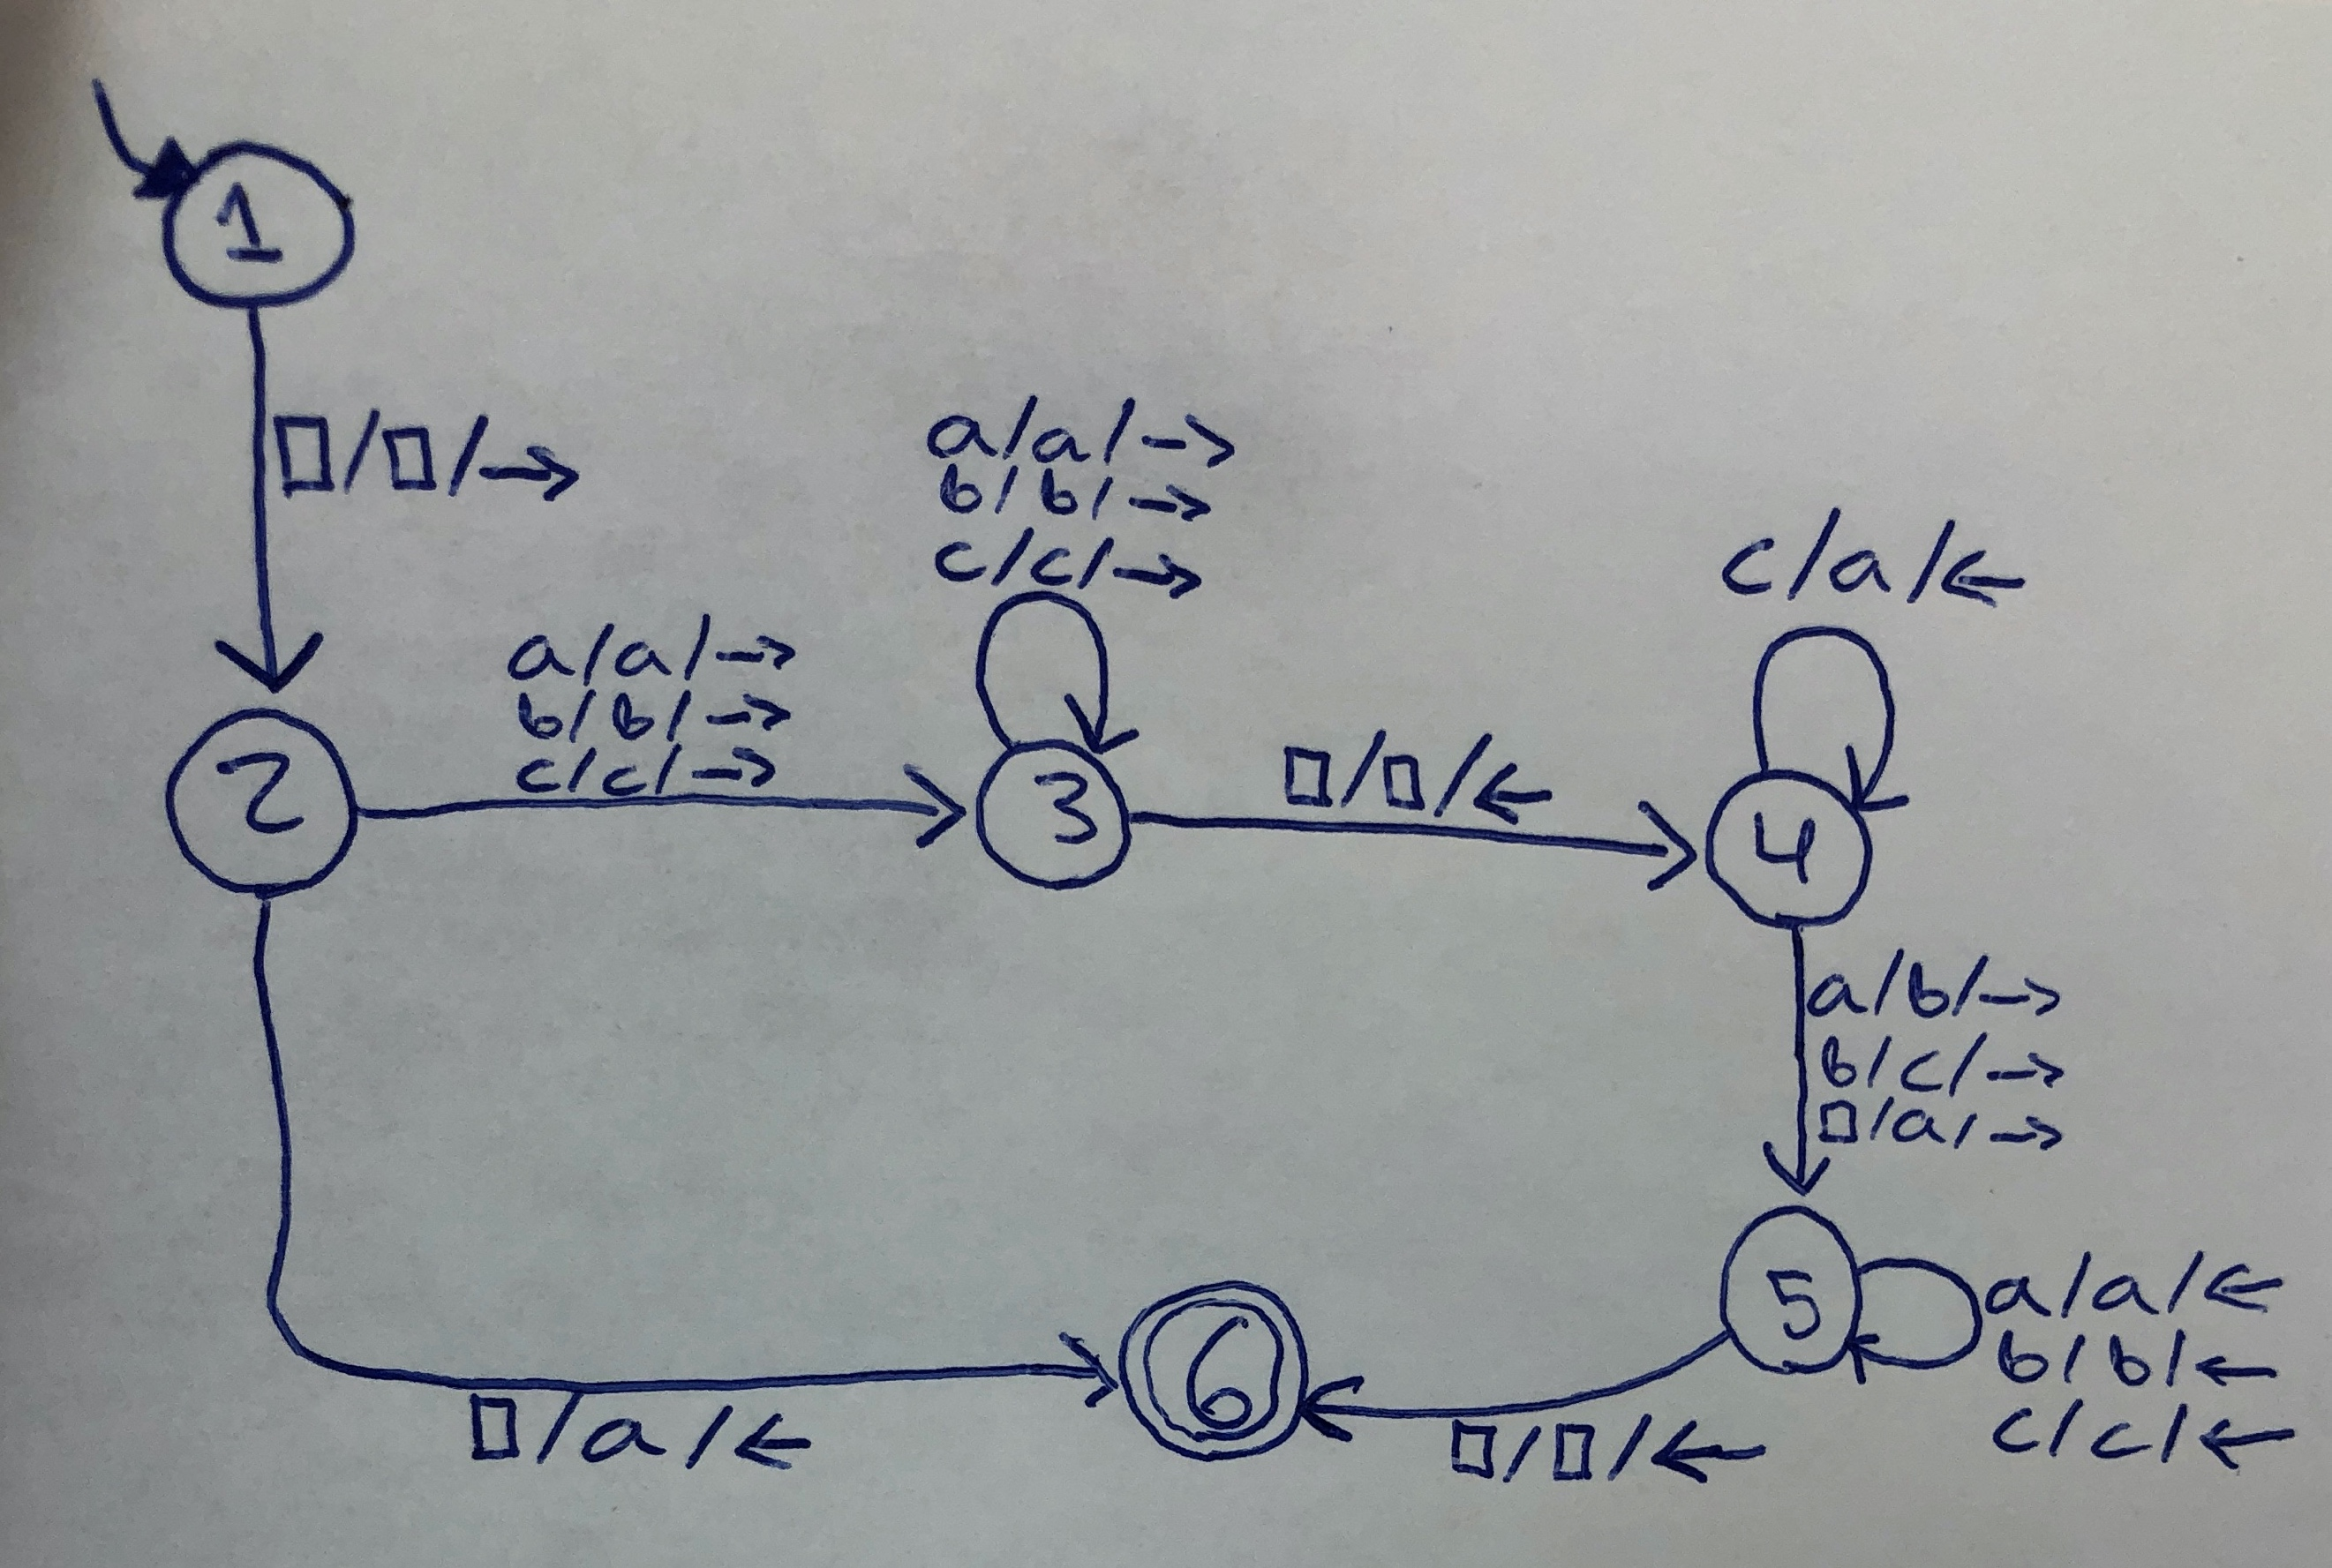 1
□/□/→
a/a/→
b/b/→
c/c/→
c/a/←
a/a/→
b/b/→
c/c/→
□/□/←
2
3
4
a/b/→
b/c/→
□/a/→
5
a/a/←
b/b/←
c/c/←
6
□/a/←
□/□/←